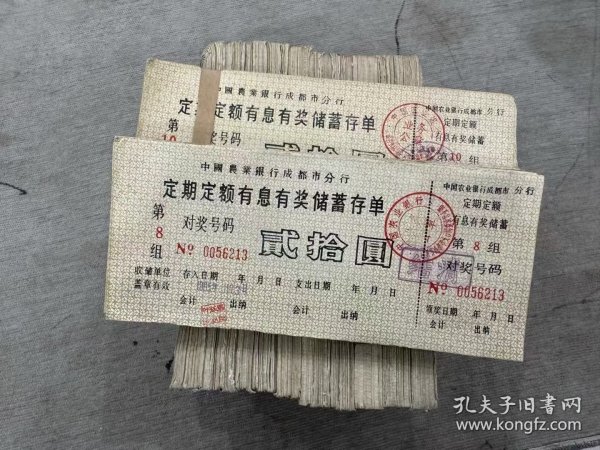 中國農業銀行成都市分行
定期定额有息有奖储蓄存单
第
10
奖号码
贰拾圆
中国农业银行成都市 分行
定期定额
有息有奖储蓄
第 10 组
中國農業銀行成都市分行
定期定额有息有奖储蓄存单
第
8
组
对奖号码
№ 0056213
貳拾圓
收储单位
盖章有效
存入日期 年 月 日 支出日期 年 月 日
会计 出纳 会计 出纳
中国农业银行成都市 分行
定期定额
有息有奖储蓄
第 8 组
对奖号码
№ 0056213
领奖日期 年 月 日
会计 出纳
孔夫子旧书网
www.kongfz.com